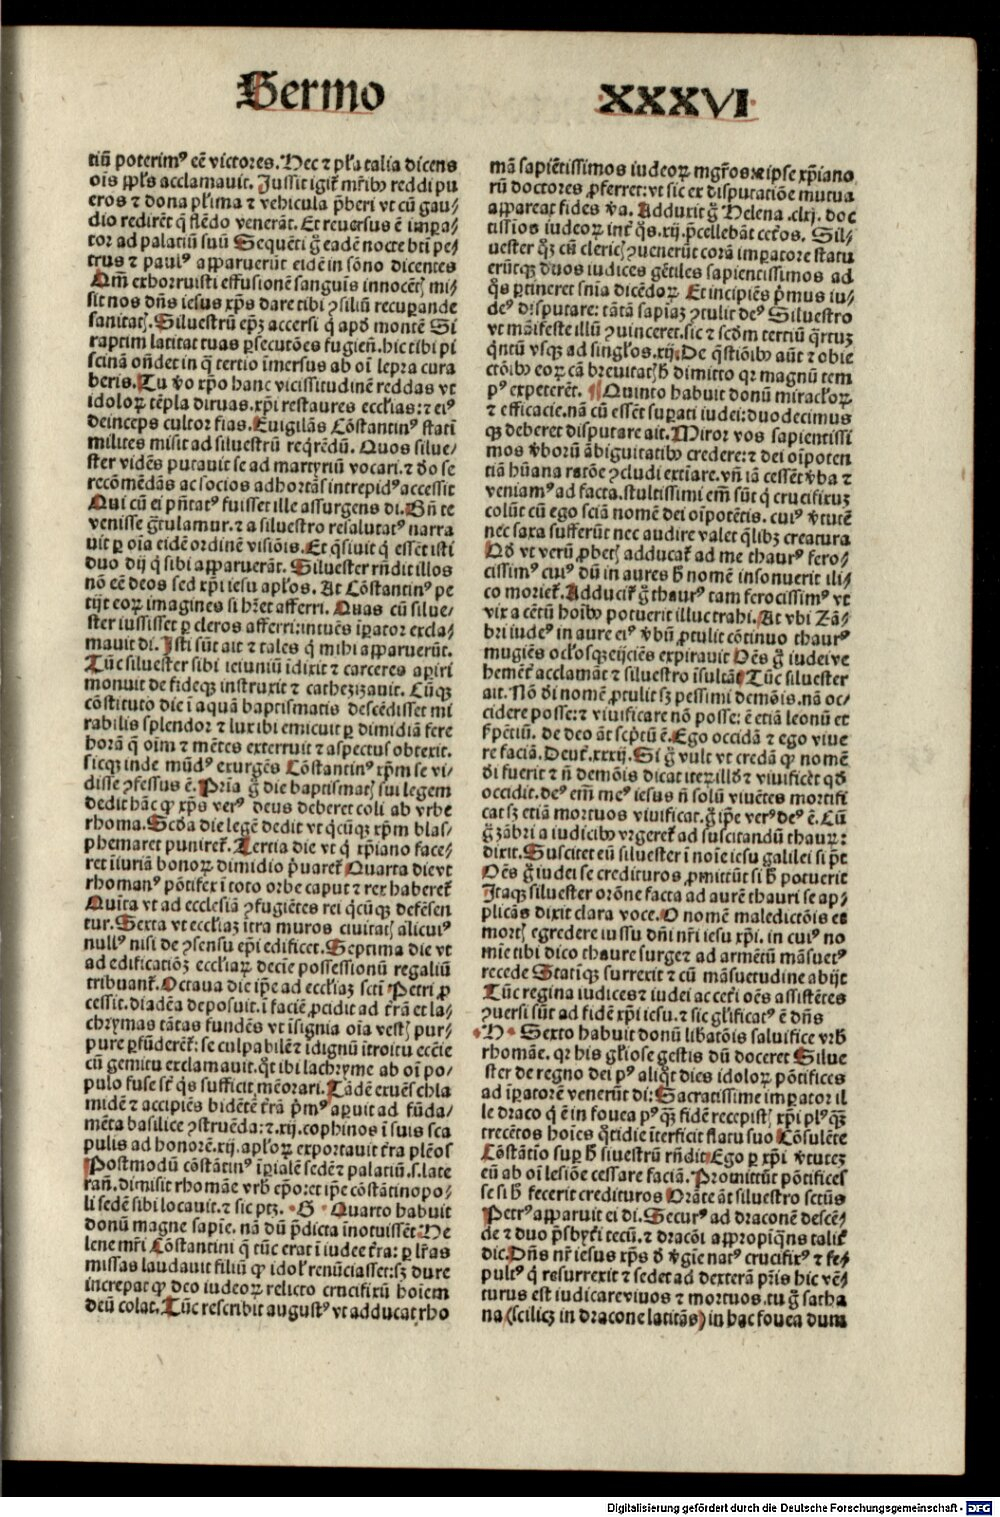 Sermo XXXVI
tiū poterimꝰ eē victores. Hec ⁊ pl̄a talia dicens
oīs pp̄ls acclamauit. Jussit igit̄ mr̄ibꝰ reddi pu
eros ⁊ dona pl̄ima ⁊ vehicula p̄beri vt cū gau⸗
dio redirēt q̄ flēdo venerāt. Et reuersus ē imꝑa⸗
tor ad palatiū suū Sequēti g̊ eadē nocte bt̄i pe⸗
trus ⁊ paulꝰ apparuerūt eidē in sōno dicentes
Qm̄ exhorruisti effusionē sanguis innocētꝭ mi⸗
sit nos dn̄s iesus xp̄s dare tibi ꝯsiliū recuꝑande
sanitatꝭ. Siluestrū ep̄ꝫ accersi q̇ apō montē Si
raptim latitat tuas ꝑsecutōes fugien̄. hic tibi pi
scinā on̄det in q̄ tertio īmersus ab oī lepra cura
beris. Tu v̊o xp̄o hanc vicissitudinē reddas vt
idoloꝝ tēpla diruas. xp̄i restaures ecclīas: ⁊ eiꝰ
deinceps cultor fias. Euigilās Cōstantinꝰ statī
milites misit ad siluestrū reqrēdū. Quos silue⸗
ster vidēs putauit se ad martyriū vocari. ⁊ d̄o se
recōmēdās ac socios adhortās intrepidꝰ accessit
Qui cū ei pn̄tatꝰ fuisset ille assurgens di. Bn̄ te
venisse gr̄tulamur. ⁊ a siluestro resalutatꝰ narra
uit ꝑ oīa eidē ordinē visiōis. Et q̄siuit q̇ essēt isti
duo dij q̇ sibi apparuerāt. Siluester rn̄dit illos
nō eē deos sed xp̄i iesu apl̄os. At Cōstantinꝰ pe
tijt eoꝝ imagines si hr̄et afferri. Quas cū silue⸗
ster iussisset ꝑ cleros afferri: intuēs īꝑator excla⸗
mauit di. Isti sūt ait ⁊ tales q̇ mihi apparuerūt.
Tūc siluester sibi ieiuniū īdixit ⁊ carceres aperiri
monuit de fideqꝫ instruxit ⁊ cathezizauit. Cūqꝫ
cōstituto die ī aquā baptismatis descēdisset mi
rabilis splendor ⁊ lux ibi emicuit ꝑ dimidiā fere
horā q̄ oīm ⁊ mētes exterruit ⁊ aspectus obtexit.
sicqꝫ inde mūdꝰ exurgēs Cōstantinꝰ xp̄m se vi⸗
disse ꝯfessus ē. Prīa g̊ die baptismatꝭ sui legem
dedit hāc ꝙ xp̄s verꝰ deus deberet coli ab vrbe
rhoma. Scd̄a die legē dedit vt q̇cūqꝫ xp̄m blas⸗
phemaret puniret̄. Tertia die vt q̇ xp̄iano face⸗
ret īiuriā bonoꝝ dimidio p̄uaret̄. Quarta die vt
rhomanꝰ pōtifex ī toto orbe caput ⁊ rex haberet̄
Quīta vt ad ecclesiā ꝯfugiētes rei q̇cūqꝫ defēsen
tur. Sexta vt ecclīaꝫ ītra muros ciuitatꝭ alicuiꝰ
nullꝰ nisi de ꝯsensu ep̄i edificet. Septima die vt
ad edificatiōꝫ ecclīaꝝ decīe possessionū regaliū
tribuant̄. Octaua die ip̄e ad ecclīaꝫ sct̄i Petri ꝓ
cessit. diadēa deposuit. ī faciē ꝓcidit ad t̄rā et la⸗
chrymas tātas fundēs vt īsignia oīa vestꝭ pur⸗
pure ꝑfūderēt̄: se culpabilē ⁊ īdignū ītroitu eccīe
cū gemitu exclamauit. qt̄ ibi lachryme ab oī po⸗
pulo fuse st̄ q̇s sufficit mēorari. Tādē exuēs chla
midē ⁊ accipiēs bidētē t̄rā p̄mꝰ aꝑuit ad fūda⸗
mēta basilice ꝯstruēda: ⁊ .xij. cophinos ī suis sca
pulis ad honorē .xij. apl̄oꝝ exportauit t̄ra plēos
Postmodū cōstātinꝰ īꝑialē sedē ⁊ palatiū .s. late
ran̄. dimisit rhomāe vrbꝭ ep̄o: et ip̄e cōstātinopo⸗
li sedē sibi locauit. ⁊ sic ptꝫ. G Quarto habuit
donū magne sapiē. nā dū p̄dicta īnotuissēt. He
lene mr̄i Cōstantini q̄ tūc erat ī iudee t̄ra: ꝑ lr̄as
missas laudauit filiū ꝙ idol̄ renūciasset: sꝫ dure
increpat ꝙ deo iudeoꝝ relicto crucifixū hoīem
deū colat. Tūc rescribit augustꝰ vt adducat rho
mā sapiētissimos iudeoꝝ mgr̄os ⁊ ipse xp̄iano
rū doctores ꝓferret: vt sic ex disputatiōe mutua
appareat̄ fides v̄a. Adduxit g̊ Helena .clxj. doc
tissios iudeoꝝ int̄ q̇s .xij. p̄cellebāt cet̄os. Sil⸗
uester q̇ꝫ cū clericꝭ ꝯuenerūt corā imꝑatore statu
erūtqꝫ duos iudices gētiles sapientissimos ad
q̇s ꝑtineret sn̄ia dicēdoꝝ. Et incipiēs p̄mus iu⸗
deꝰ disputare: tātā sapiāꝫ ꝯtulit deꝰ Siluestro
vt māifeste illū ꝯuinceret. sic ⁊ scd̄m tertiū q̇rtuꝫ
q̇ntū vsqꝫ ad singl̄os .xij. De q̄stiōibꝰ aūt ⁊ obie
ctōibꝰ eoꝝ cā breuitatꝭ h̄ dimitto qr magnū tem
pꝰ expeterēt. ¶ Quinto habuit donū miracl̄oꝝ
⁊ efficacie. nā cū essēt suꝑati iudei: duodecimus
qꝫ deberet disputare ait. Miror vos sapientissi
mos v̄borū ābiguitatibꝰ credere: ⁊ dei oīpoten
tiā hūana ratōe ꝯcludi extīare. vn̄ iā cessēt v̄ba ⁊
veniamꝰ ad facta. stultissimi em̄ sūt q̇ crucifixuꝫ
colūt cū ego sciā nomē dei oīpotētis. cuiꝰ v̄tutē
nec saxa sufferūt nec audire valet q̄libꝫ creatura
Qd̄ vt verū ꝓbetꝭ adducat̄ ad me thaurꝰ fero⸗
cissimꝰ cuiꝰ dū in aures h̄ nomē insonuerit ili⸗
co moriet̄. Adducit̄ g̊ thaurꝰ tam ferocissimꝰ vt
vix a cētū hoībꝰ potuerit illuc trahi. At vbi Zā⸗
bri iudeꝰ in aure eiꝰ v̄bū ꝓtulit cōtinuo thaurꝰ
mugiēs oclosqꝫ eijciēs expirauit Oēs g̊ iudei ve
hemēt̄ acclamāt ⁊ siluestro īsultāt Tūc siluester
ait. Nō d̄i nomē ꝓtulit sꝫ pessimi demōis. nā oc⸗
cidere posse: ⁊ viuificare nō posse: ē etiā leonū et
s̄pētiū. de deo āt scp̄tū ē. Ego occidā ⁊ ego viue
re faciā. Deut̄. xxxij. Si g̊ vult vt credā ꝙ nomē
d̄i fuerit ⁊ n̄ demōis dicat iteꝝ illd̄ ⁊ viuificet qd̄
occidit. deꝰ em̄ meꝰ iesus n̄ solū viuētes mortifi
cat sꝫ etiā mortuos viuificat. g̊ ip̄e verꝰ deꝰ ē. Cū
g̊ zābri a iudicibꝰ vrgeret̄ ad suscitandū thaurꝫ:
dixit. Suscitet eū siluester ī noīe iesu galilei si pt̄
Oēs g̊ iudei se credituros ꝓmittūt si h̄ potuerit
Itaqꝫ siluester orōne facta ad aurē thauri se ap⸗
plicās dixit clara voce. O nomē maledictōis et
mortꝭ egredere iussu dn̄i nr̄i iesu xp̄i. in cuiꝰ no
mīe tibi dico thaure surge ⁊ ad armētū māsuetꝰ
recede Statīqꝫ surrexit ⁊ cū māsuetudine abijt
Tūc regina iudices ⁊ iudei ac cet̄i oēs assistētes
ꝯuersi sūt ad fidē xp̄i iesu. ⁊ sic gl̄ificatꝰ ē dn̄s
H Sexto habuit donū lib̄atōis saluifice vrbꝭ
rhomāe. qr his gl̄iose gestis dū doceret Silue
ster de regno dei pꝰ aliq̄t dies idoloꝝ pōtifices
ad īꝑatorē venerūt di: Sacratissime imꝑator il
le draco q̇ ē in fouea pꝰqꝫ fidē recepistꝭ xp̄i plꝰqꝫ
trecētos hoīes q̄tidie īterficit flatu suo Cōsulēte
Cōstātio suꝑ h̄ siluestrū rn̄dit. Ego ꝑ xp̄i v̄tuteꝫ
eū ab oī lesiōe cessare faciā. Promittūt pōtifices
se si h̄ fecerit credituros Orāte āt siluestro sctūs
Petrꝰ apparuit ei di. Securꝰ ad draconē descē⸗
de ⁊ duo p̄sbyt̄i tecū. ⁊ dracōi appropiqns talit̄
dic. Dn̄s nr̄ iesus xp̄s d̄ v̄gīe natꝰ crucifixꝰ ⁊ se⸗
pultꝰ q̇ resurrexit ⁊ sedet ad dexterā pr̄is hic vē⸗
turus est iudicare viuos ⁊ mortuos. tu g̊ satha
na (scilicꝫ in dracone latitās) in hac fouea dum
Digitalisierung gefördert durch die Deutsche Forschungsgemeinschaft - DFG